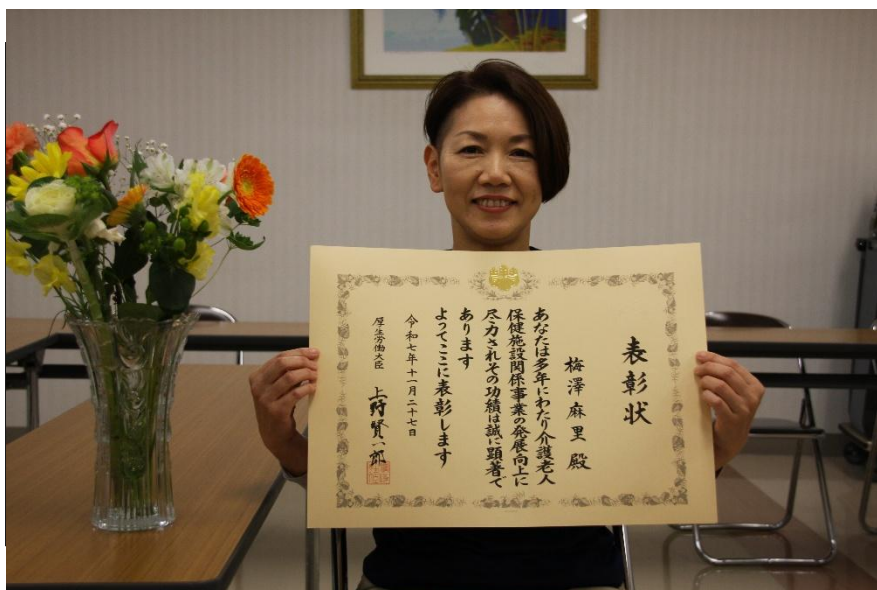 表彰状
梅澤麻里殿
あなたは多年にわたり介護老人
保健施設関係事業の発展向上に
尽力されその功績は誠に顕著で
あります
よってここに表彰します
令和七年十一月二十七日
厚生労働大臣 上野賢一郎